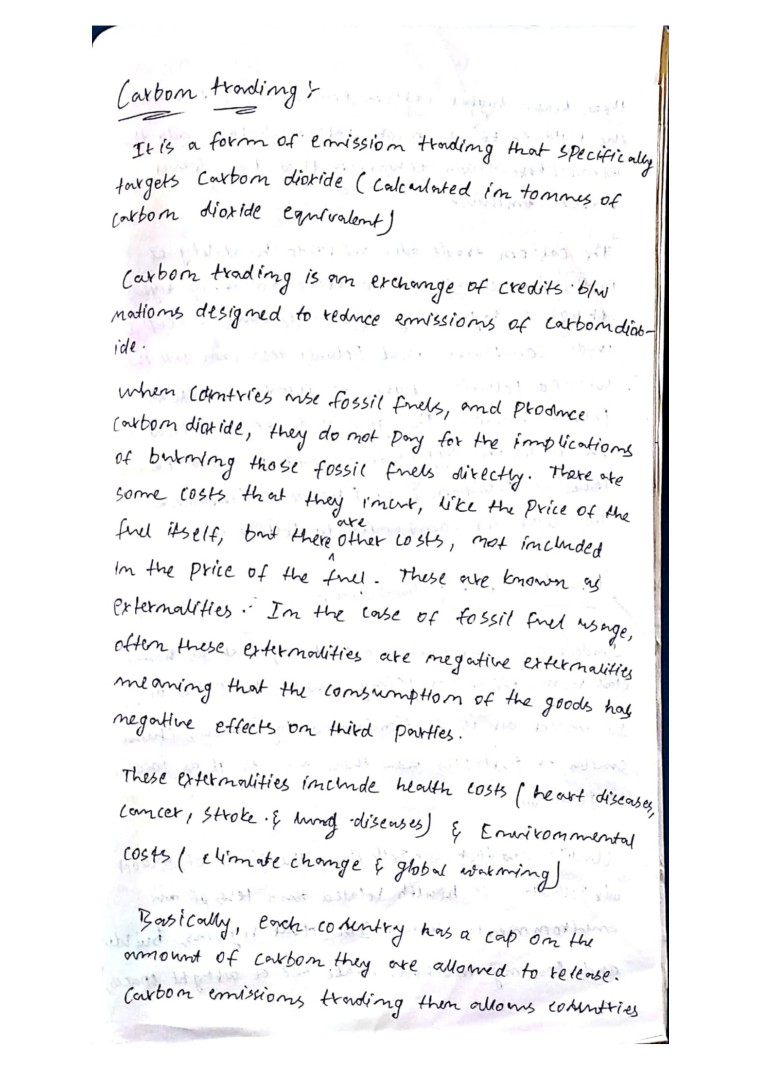 Carbon trading :-
It is a form of emission trading that specifically
targets Carbon dioxide ( Calculated in tonnes of
Carbon dioxide equivalent)
Carbon trading is an exchange of credits b/w
nations designed to reduce emissions of Carbondiox-
ide.
When Countries use fossil fuels, and produce
Carbon dioxide, they do not pay for the implications
of burning those fossil fuels directly. There are
some costs that they incur, like the price of the
fuel itself, but there are other costs, not included
in the price of the fuel. These are known as
externalities. In the case of fossil fuel usage,
often these externalities are negative externalities
meaning that the consumption of the goods has
negative effects on third parties.
These externalities include health costs ( heart diseases,
cancer, stroke & lung diseases) & Environmental
costs ( climate change & global warming)
Basically, each country has a cap on the
amount of carbon they are allowed to release.
Carbon emissions trading then allows countries